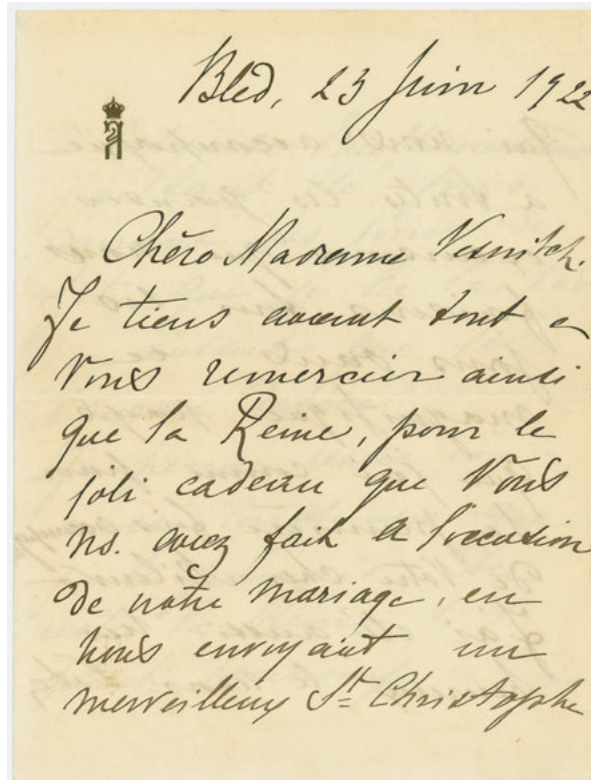 Bled, 23 Juin 1922
Chère Madame Vesnitch.
Je tiens avant tout a
Vous remercier ainsi
que la Reine, pour le
joli cadeau que Vous
ns. avez fait a l'occasion
de notre mariage, en
nous envoyant un
merveilleux St Christophe